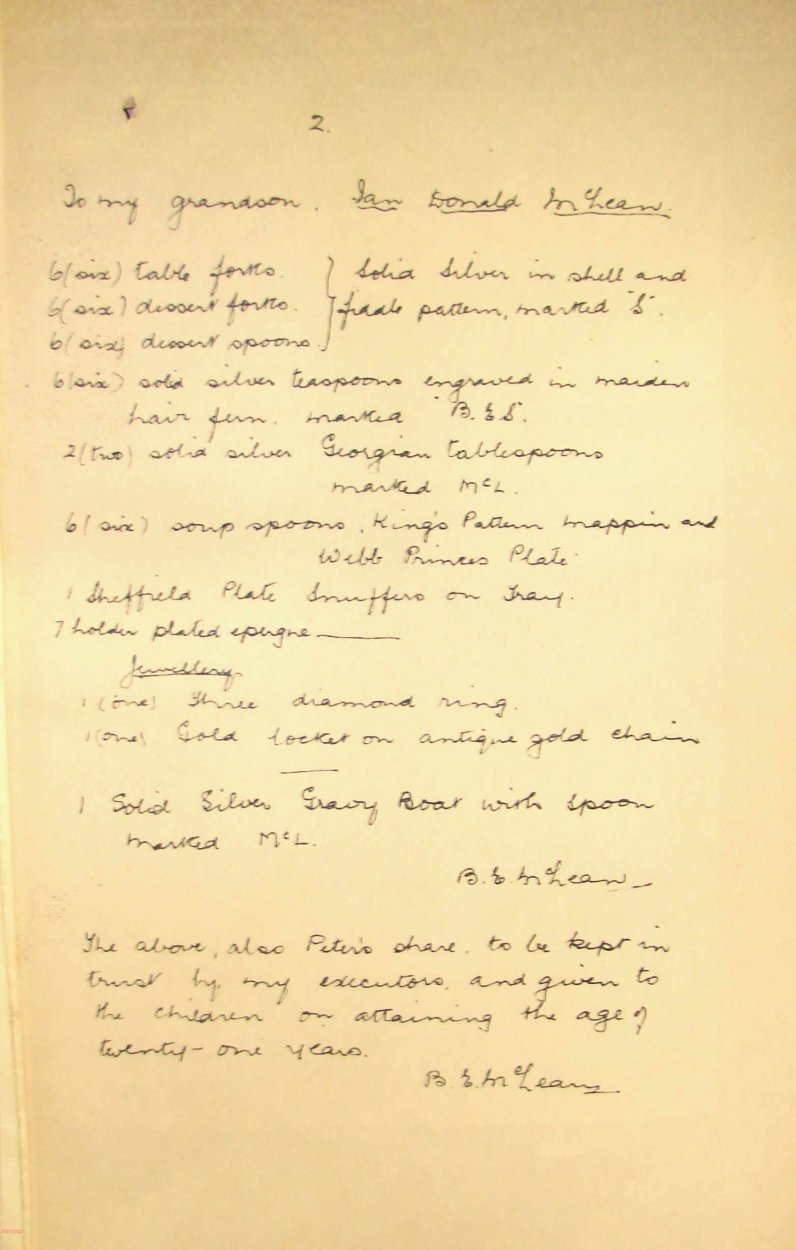 2.
To my grandson, Ian Donald McLean.
6(six) table forks. } Solid Silver in shell and
6(six) dessert forks. } fiddle pattern, marked "S".
6(six) dessert spoons. }
6(six) solid silver teaspoons engraved in maiden
hair fern. marked "B.E.S".
2(two) solid silver Georgian tablespoons
marked McL.
6(six) soup spoons, King's Pattern Mappin and
Webb Princes Plate
1 Sheffield Plate Snuffers on Tray.
7 holder plated epergne
Jewellery
1(one) Three diamond ring.
1(one) Gold locket on antique gold chain
1 Solid Silver Gravy Boat with spoon
marked McL.
B.E. McLean
The above, also Peter's share. to be kept in
trust by my executors, and given to
the children on attaining the age of
twenty-one years.
B.E. McLean